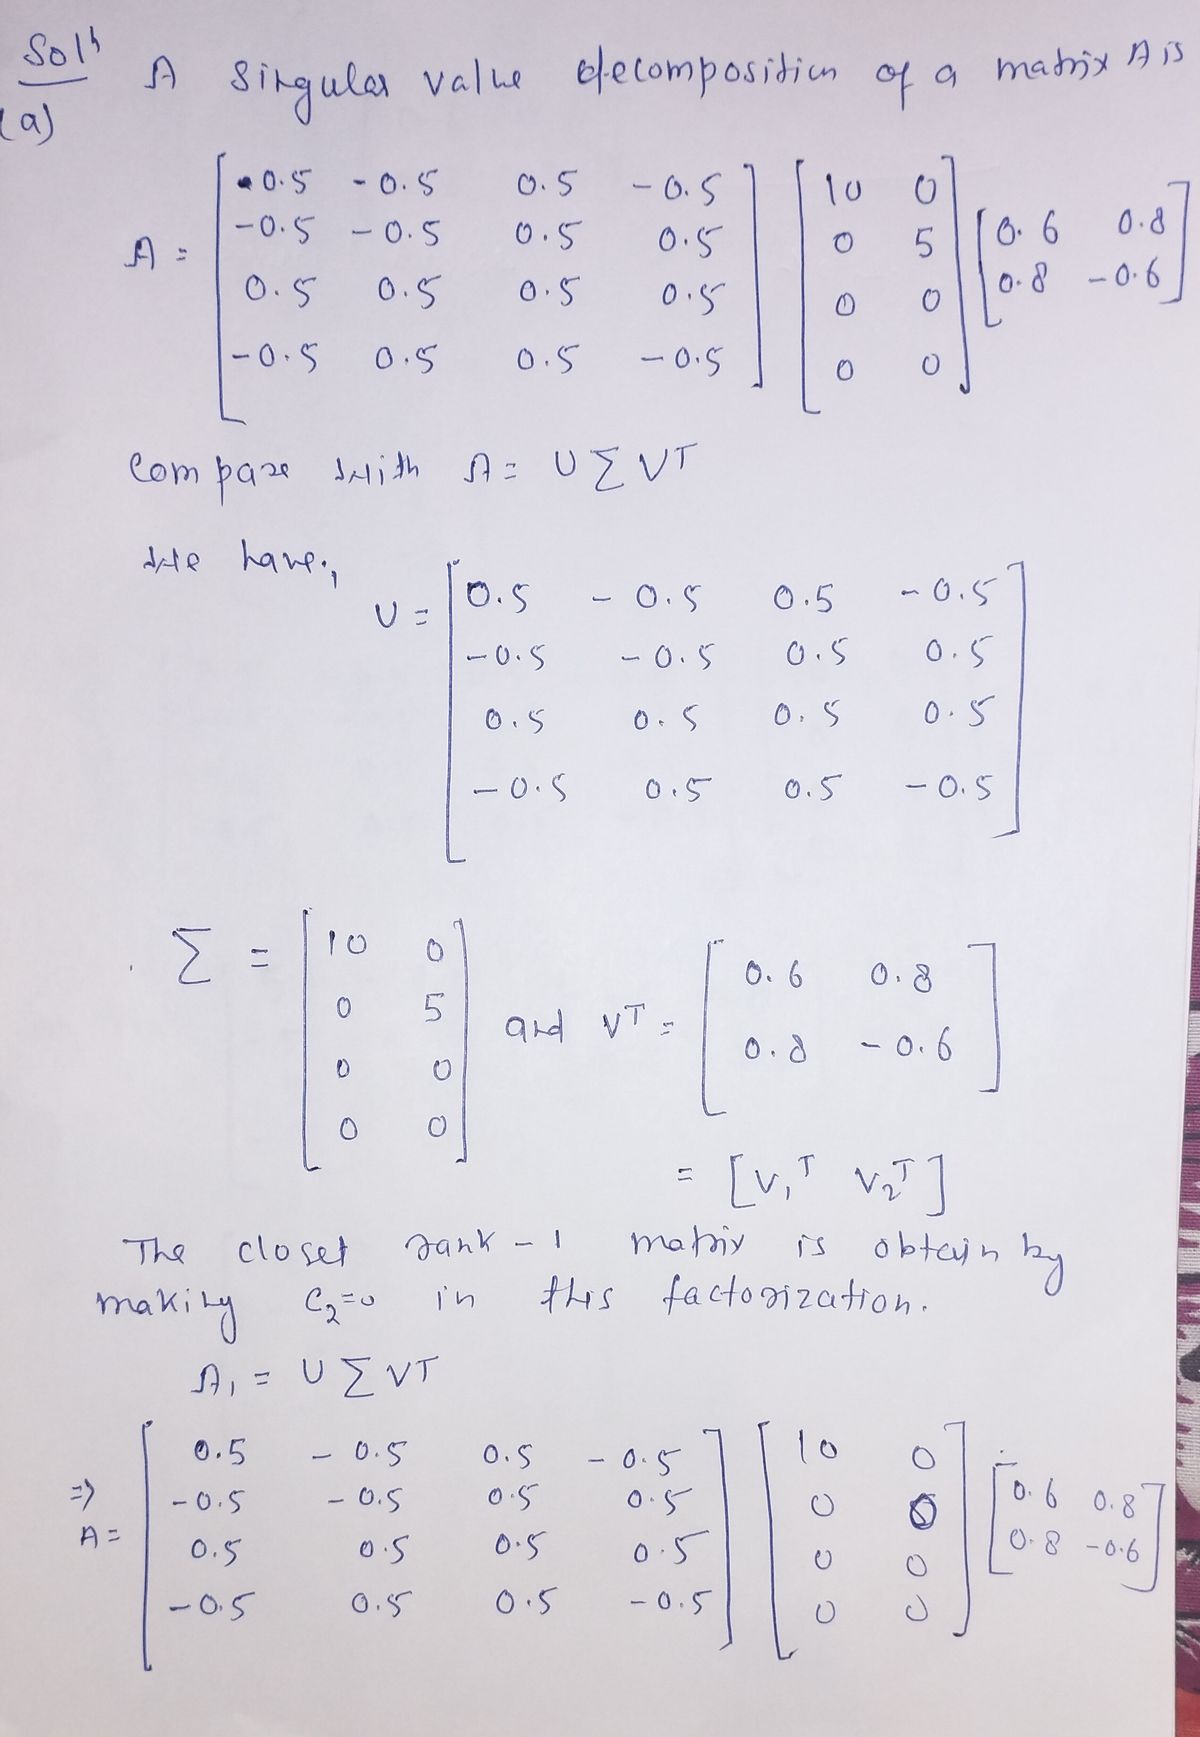 Solⁿ A Singular value decomposition of a matrix A is
(a)
A = [ 0.5 -0.5 0.5 -0.5 ] [ 10 0 ] [ 0.6 0.8 ]
-0.5 -0.5 0.5 0.5 0 5 0.8 -0.6
0.5 0.5 0.5 0.5 0 0
-0.5 0.5 0.5 -0.5 0 0
Compare with A = U Σ VT
We have,
U = [ 0.5 -0.5 0.5 -0.5 ]
-0.5 -0.5 0.5 0.5
0.5 0.5 0.5 0.5
-0.5 0.5 0.5 -0.5
Σ = [ 10 0 ] and VT = [ 0.6 0.8 ]
0 5 0.8 -0.6
0 0
0 0
= [V₁ᵀ V₂ᵀ]
The closet rank-1 matrix is obtain by
making C₂=0 in this factorization.
A₁ = U Σ VT
⇒ A = [ 0.5 -0.5 0.5 -0.5 ] [ 10 0 ] [ 0.6 0.8 ]
-0.5 -0.5 0.5 0.5 0 0 0.8 -0.6
0.5 0.5 0.5 0.5 0 0
-0.5 0.5 0.5 -0.5 0 0